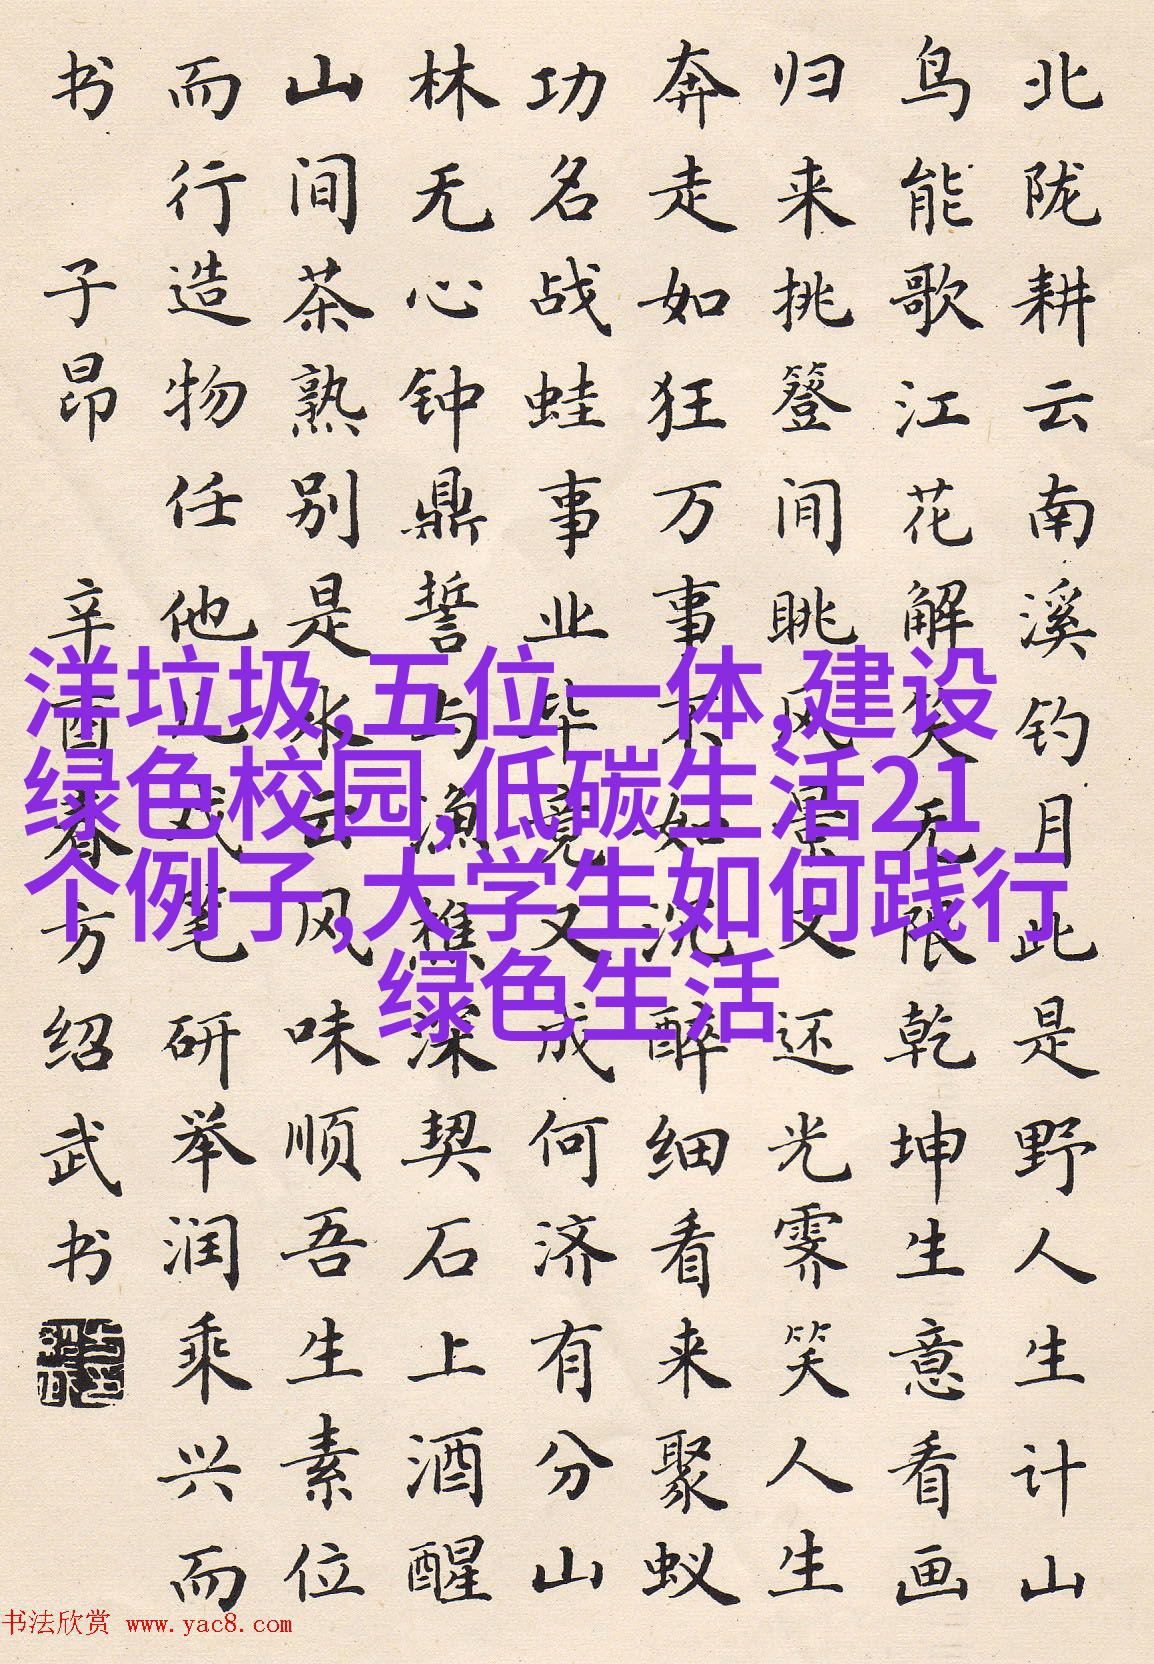 北陇耕云南溪钓月此是野人生计山
鸟能歌江花解笑无限乾坤生意看画
归来挑簦间眺风景又还光霁笑人生
奔走如狂万事不如沉醉细看来聚蚁
功名战蛙事业毕竟又成何济有分山
林无心钟鼎誓与渔樵深契石上酒醒
山间茶熟别是水云风味顺吾生素位
而行造物任他儿戏笔研举润乘兴而
书 子昂 辛酉春方绍武书
洋垃圾,五位一体,建设
绿色校园,低碳生活21
个例子,大学生如何践行
绿色生活
书法欣赏 www.yac8.com